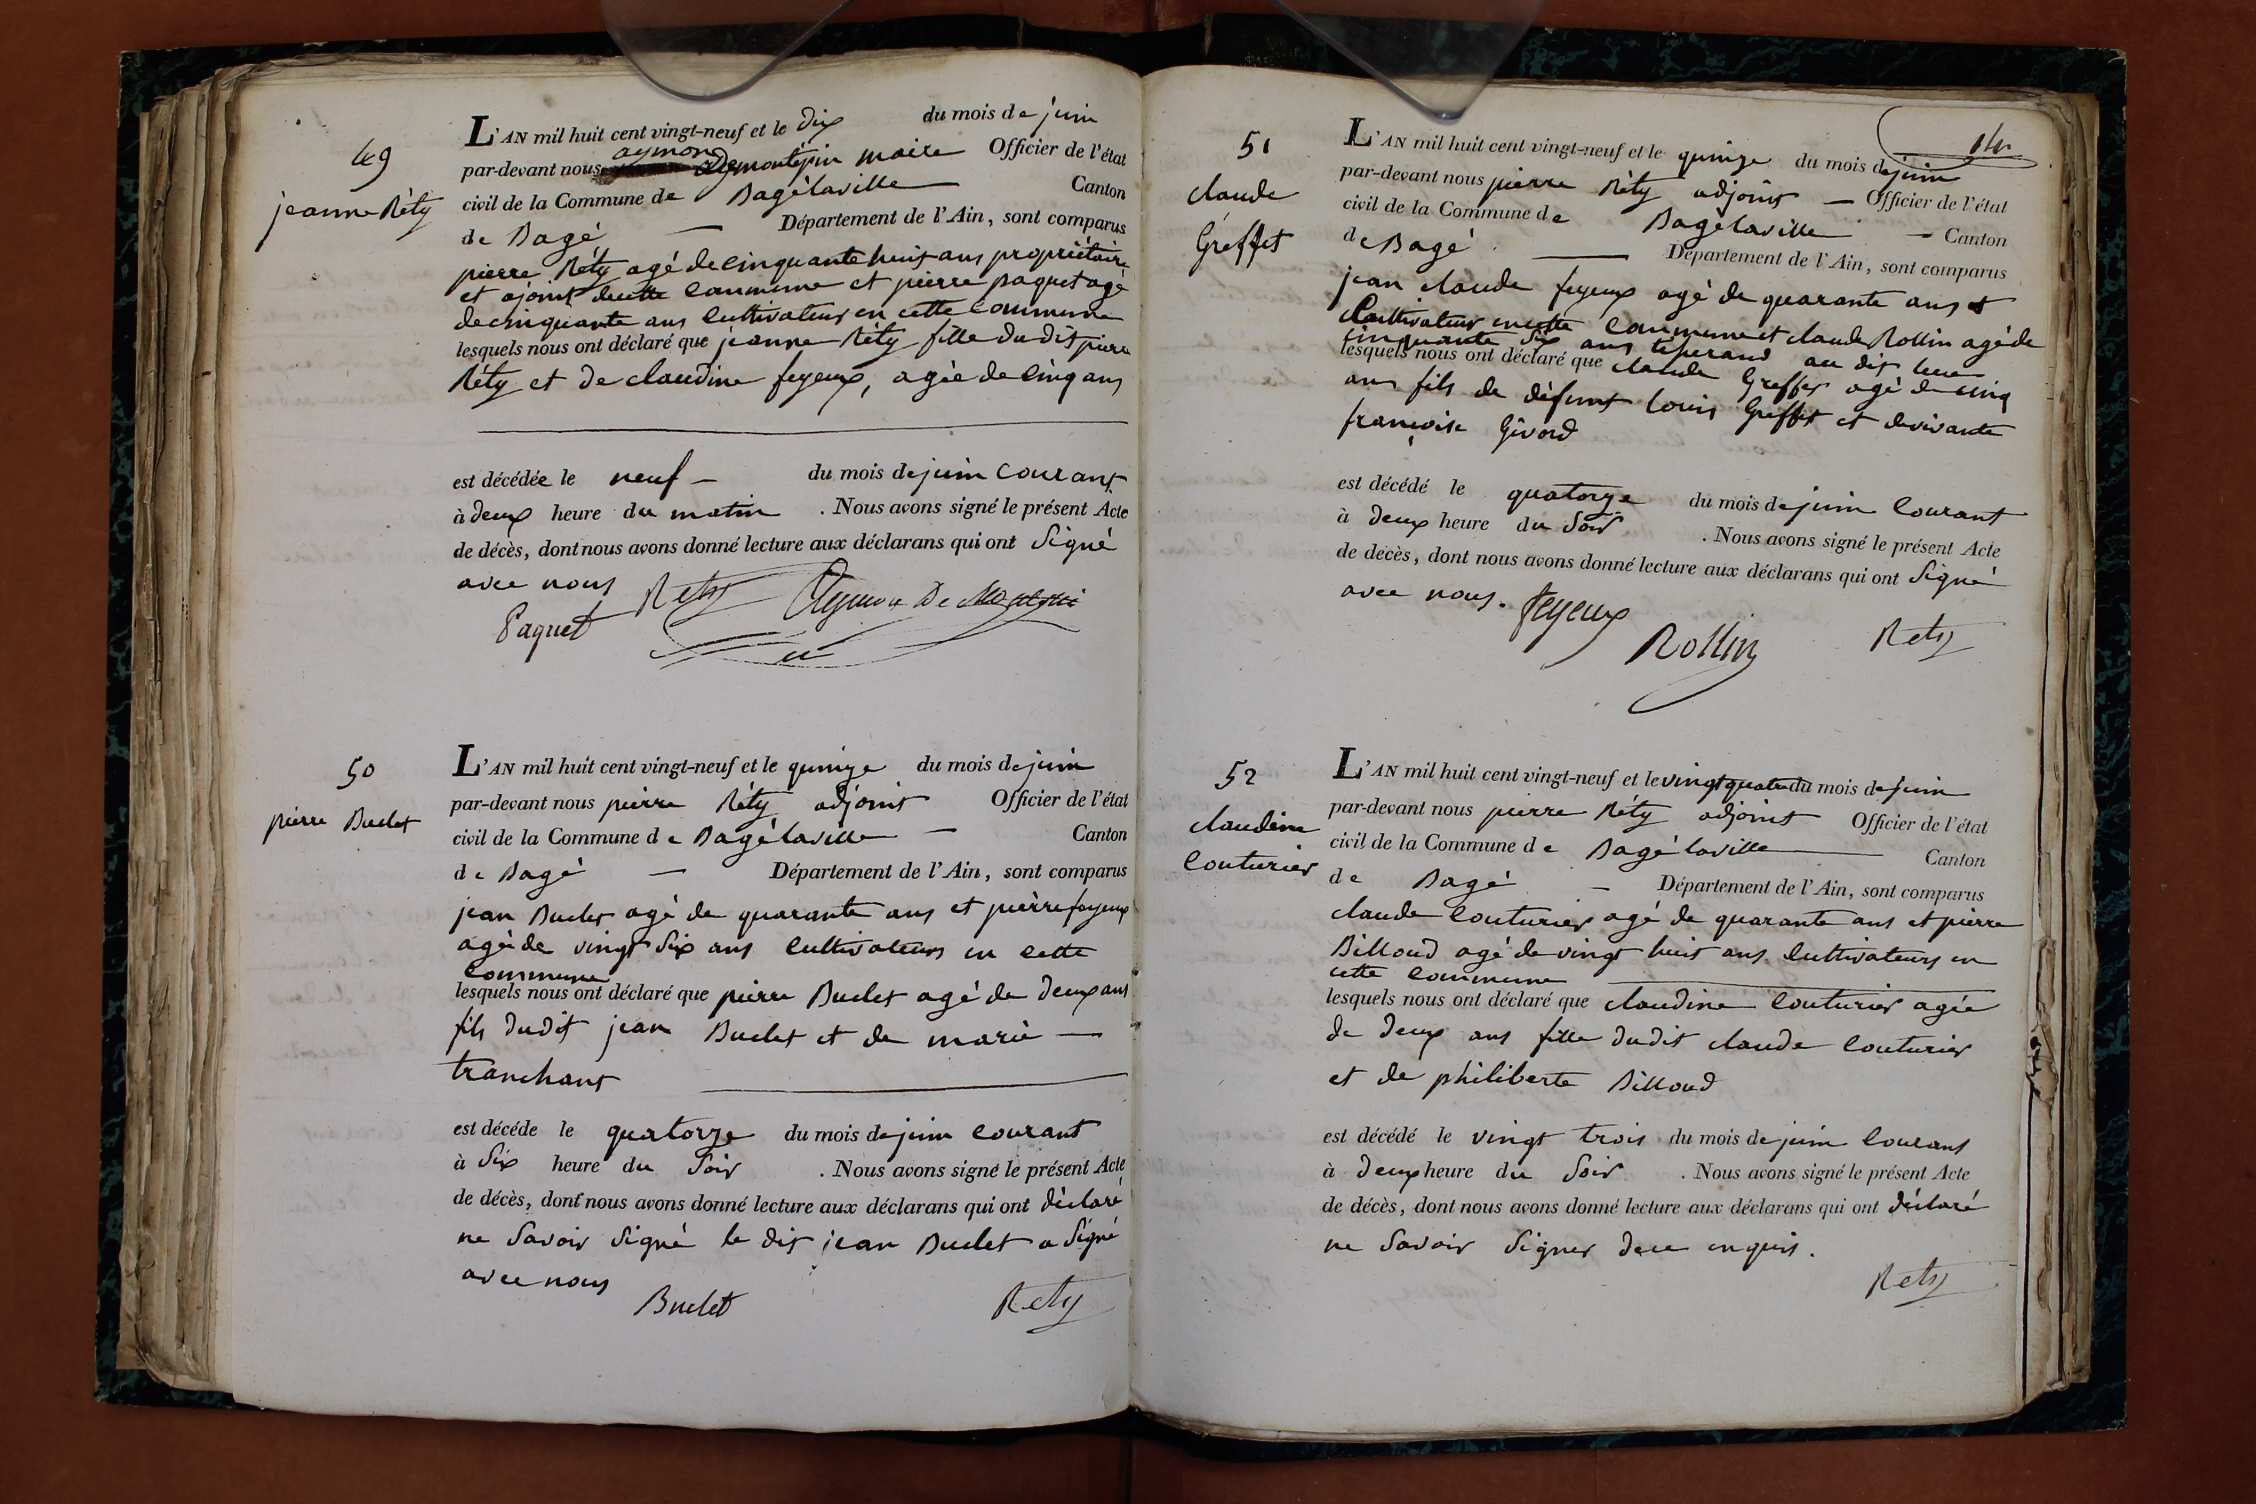 49
jeanne Réty
L'AN mil huit cent vingt-neuf et le dix du mois de juin
par-devant nous aymon Demontépin maire Officier de l'état
civil de la Commune de Bagélaville Canton
de Bagé — Département de l'Ain, sont comparus
pierre Réty agé de cinquante huit ans propriétaire
et ajoint decette commune et pierre paquet agé
decinquante ans cultivateur en cette commune
lesquels nous ont déclaré que jeanne Réty fille du dit pierre
Réty et de claudine feyeux, agée de cinq ans
est décédée le neuf — du mois de juin courant
à deux heure du matin . Nous avons signé le présent Acte
de décès, dont nous avons donné lecture aux déclarans qui ont signé
avec nous
Paquet Rety Aymon De Montépin
50
pierre Buclet
L'AN mil huit cent vingt-neuf et le quinze du mois de juin
par-devant nous pierre Réty adjoint Officier de l'état
civil de la Commune de Bagélaville — Canton
de Bagé — Département de l'Ain, sont comparus
jean Buclet agé de quarante ans et pierre fayeux
agé de vingt six ans cultivateurs en cette
commune
lesquels nous ont déclaré que pierre Buclet agé de deux ans
fils dudit jean Buclet et de marie —
tranchant
est décéde le quatorze du mois de juin courant
à six heure du soir . Nous avons signé le présent Acte
de décès, dont nous avons donné lecture aux déclarans qui ont déclaré
ne savoir signé le dit jean Buclet a signé
avec nous
Buclet Rety
51
claude
Greffet
L'AN mil huit cent vingt-neuf et le quinze du mois de juin
par-devant nous pierre Réty adjoint — Officier de l'état
civil de la Commune de Bagélaville — Canton
de Bagé — Département de l'Ain, sont comparus
jean claude feyeux agé de quarante ans
Cultivateur encette commune et claude Rollin agé de
cinquante six ans tisserand au dit lieu
lesquels nous ont déclaré que claude Greffet agé de cinq
ans fils de défunt louis Greffet et devivante
françoise Givord
est décédé le quatorze du mois de juin courant
à deux heure du soir . Nous avons signé le présent Acte
de décès, dont nous avons donné lecture aux déclarans qui ont signé
avec nous. feyeux
Rollin Rety
52
claudine
couturier
L'AN mil huit cent vingt-neuf et le vingt quatre du mois de juin
par-devant nous pierre Réty adjoint Officier de l'état
civil de la Commune de Bagélaville Canton
de Bagé — Département de l'Ain, sont comparus
claude couturier agé de quarante ans et pierre
Billoud agé de vingt huit ans cultivateurs en
cette commune
lesquels nous ont déclaré que claudine couturier agée
de deux ans fille dudit claude couturier
et de philiberte Billoud
est décédé le vingt trois du mois de juin courant
à deux heure du soir . Nous avons signé le présent Acte
de décès, dont nous avons donné lecture aux déclarans qui ont déclaré
ne savoir signer dece enquis.
Rety